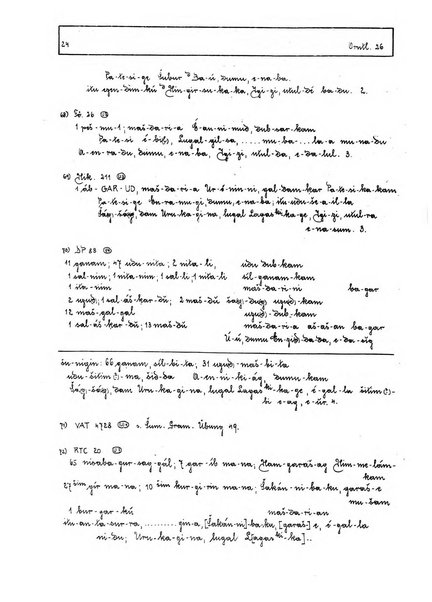 24 Orntl. 26
Pa-te-si-ge Šubur Ba-ú, dumu, e-na-ba.
itu ezen-dim-kú Nin-gir-su-ka-ka, Igi-zi, utul-dé ba-du. 2.
68) Fö. 26
1 -mu-1; maš-da-ri-a É-an-ni-mud, dub-sar-kam
Pa-te-si é-bi-š, Lugal-gil-sa, ....mu-ba...la-a mu-na-du
A-en-ra-du, dumu, e-na-ba, Igi-zi, utul-da, e-da-lul. 3.
69) Nik. 211
1 áb-GAR-UD, maš-da-ri-a Ur-é-nin-ni, gal-dam-kar Pa-te-si-ka-kam
Pa-te-si-ge bar-a-mu-gi, dumu, e-na-ba; itu udu-šè-a-íl-la
Šag-šag, dam Uru-ka-gi-na, lugal Lagaš-ka-ge, Igi-zi, utul-ra
e-na-sum. 3.
70) DP 88
11 ganam; 47 udu-nita; 2 nita-li, udu dub-kam
1 sal-nim; 1 nita-nim; 1 sal-li; 1 nita-li síl-ganam-kam
1 ita-nim maš-da-ri-ni ba-gar
2 ugud; 1 sal-áš-kar-dú; 2 maš-dú šag-dug ugud-kam
12 maš-gal-gal ud-gud-kam
1 sal-áš-kar-dú; 13 maš-dú maš-da-ri-a aš-aš-an ba-gar
Ú-ú, dumu En-gid-da-da, e-da-sìg
šu-nigin: 66 ganam, síl-bi-ta; 31 ugud, maš-bi-ta
udu-šitim(?)-ma, šid-da A-en-ni-ki-ág, dumu-kam
Šag-šag, dam Uru-ka-gi-na, lugal Lagaš-ka-ge, é-gal-la šitim(?)-
bi e-ag, e-úr. 4.
71) VAT 4728 s. Šum. Gram. Übung 49.
72) RTC 20
65 nisaba-gur-sag-gál; 7 gar-íb ma-na; Ham-garaš-ag Nim-me-lám-
kam
27 šim gír ma-na; 10 šim kur-gi-rin ma-na; Šakán-ni-ba-ku, garaš-e
mu-du-kam
1 bur-gar-kú maš-da-ri-an
itu-an-ta-sur-ra, ..........gin-a, [Šakán-ni]-ba-ku, [garaš-]e, é-gal-la
ni-du; Uru-ka-gi-na, lugal L[agaš-ka]..